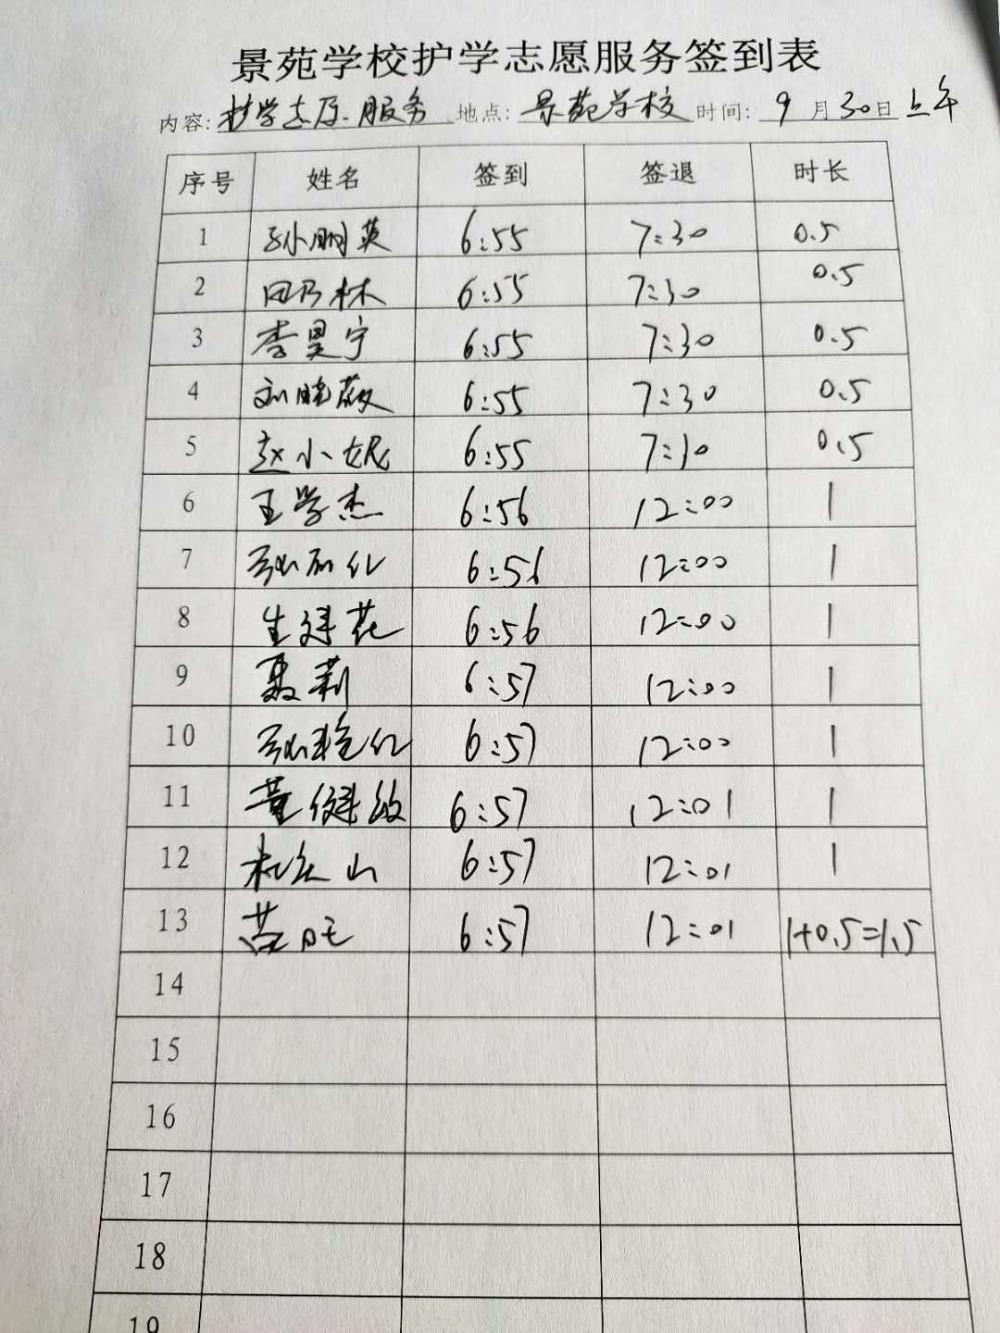 景苑学校护学志愿服务签到表
内容: 护学志愿服务 地点: 景苑学校 时间: 9月30日上午
序号 姓名 签到 签退 时长
1 孙鹏英 6:55 7:30 0.5
2 田乃林 6:55 7:30 0.5
3 李昊宁 6:55 7:30 0.5
4 刘晓薇 6:55 7:30 0.5
5 赵小妮 6:55 7:30 0.5
6 王学杰 6:56 12:00 1
7 6:56 12:00 1
8 生建花 6:56 12:00 1
9 聂莉 6:57 12:00 1
10 张艳红 6:57 12:00 1
11 董健 6:57 12:01 1
12 山 6:57 12:01 1
13 苗 6:57 12:01 1+0.5=1.5
14
15
16
17
18
19